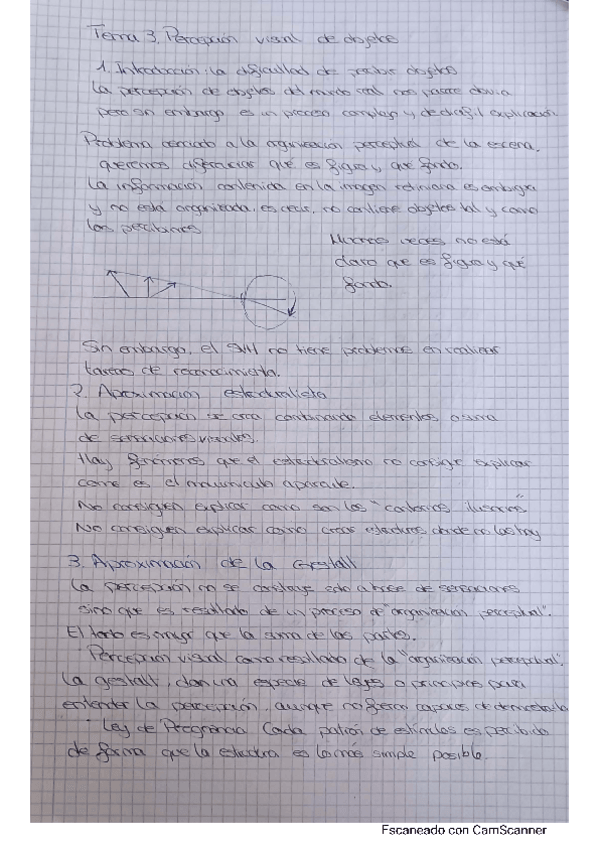 Tema 3. Percepción visual de objetos
1. Introducción: la dificultad de percibir objetos
La percepción de objetos del mundo real nos parece obvia
pero sin embargo es un proceso complejo y de difícil explicación.
Problema asociado a la organización perceptual de la escena,
queremos diferenciar qué es figura y qué fondo.
La información contenida en la imagen retiniana es ambigua
y no está organizada, es decir, no contiene objetos tal y como
los percibimos
Muchas veces no está
claro que es figura y qué
fondo.
Sin embargo, el no tiene problemas en realizar
tareas de reconocimiento.
2. Aproximación estructuralista
La percepción se crea combinando elementos o suma
de sensaciones visuales.
Hay fenómenos que el estructuralismo no consigue explicar
como es el movimiento aparente.
No consiguen explicar como son los "contornos ilusorios"
No consiguen explicar cómo crear estructuras donde no las hay
3. Aproximación de la Gestalt
La percepción no se construye solo a través de sensaciones
sino que es resultado de un proceso de "organización perceptual".
El todo es mayor que la suma de las partes.
Percepción visual como resultado de la "organización perceptual".
La gestalt, dan una especie de leyes o principios para
entender la percepción, aunque no fueron capaces de demostrarla
Ley de Pregnancia Cada patrón de estímulos es percibido
de forma que la estructura es la más simple posible.
Escaneado con CamScanner